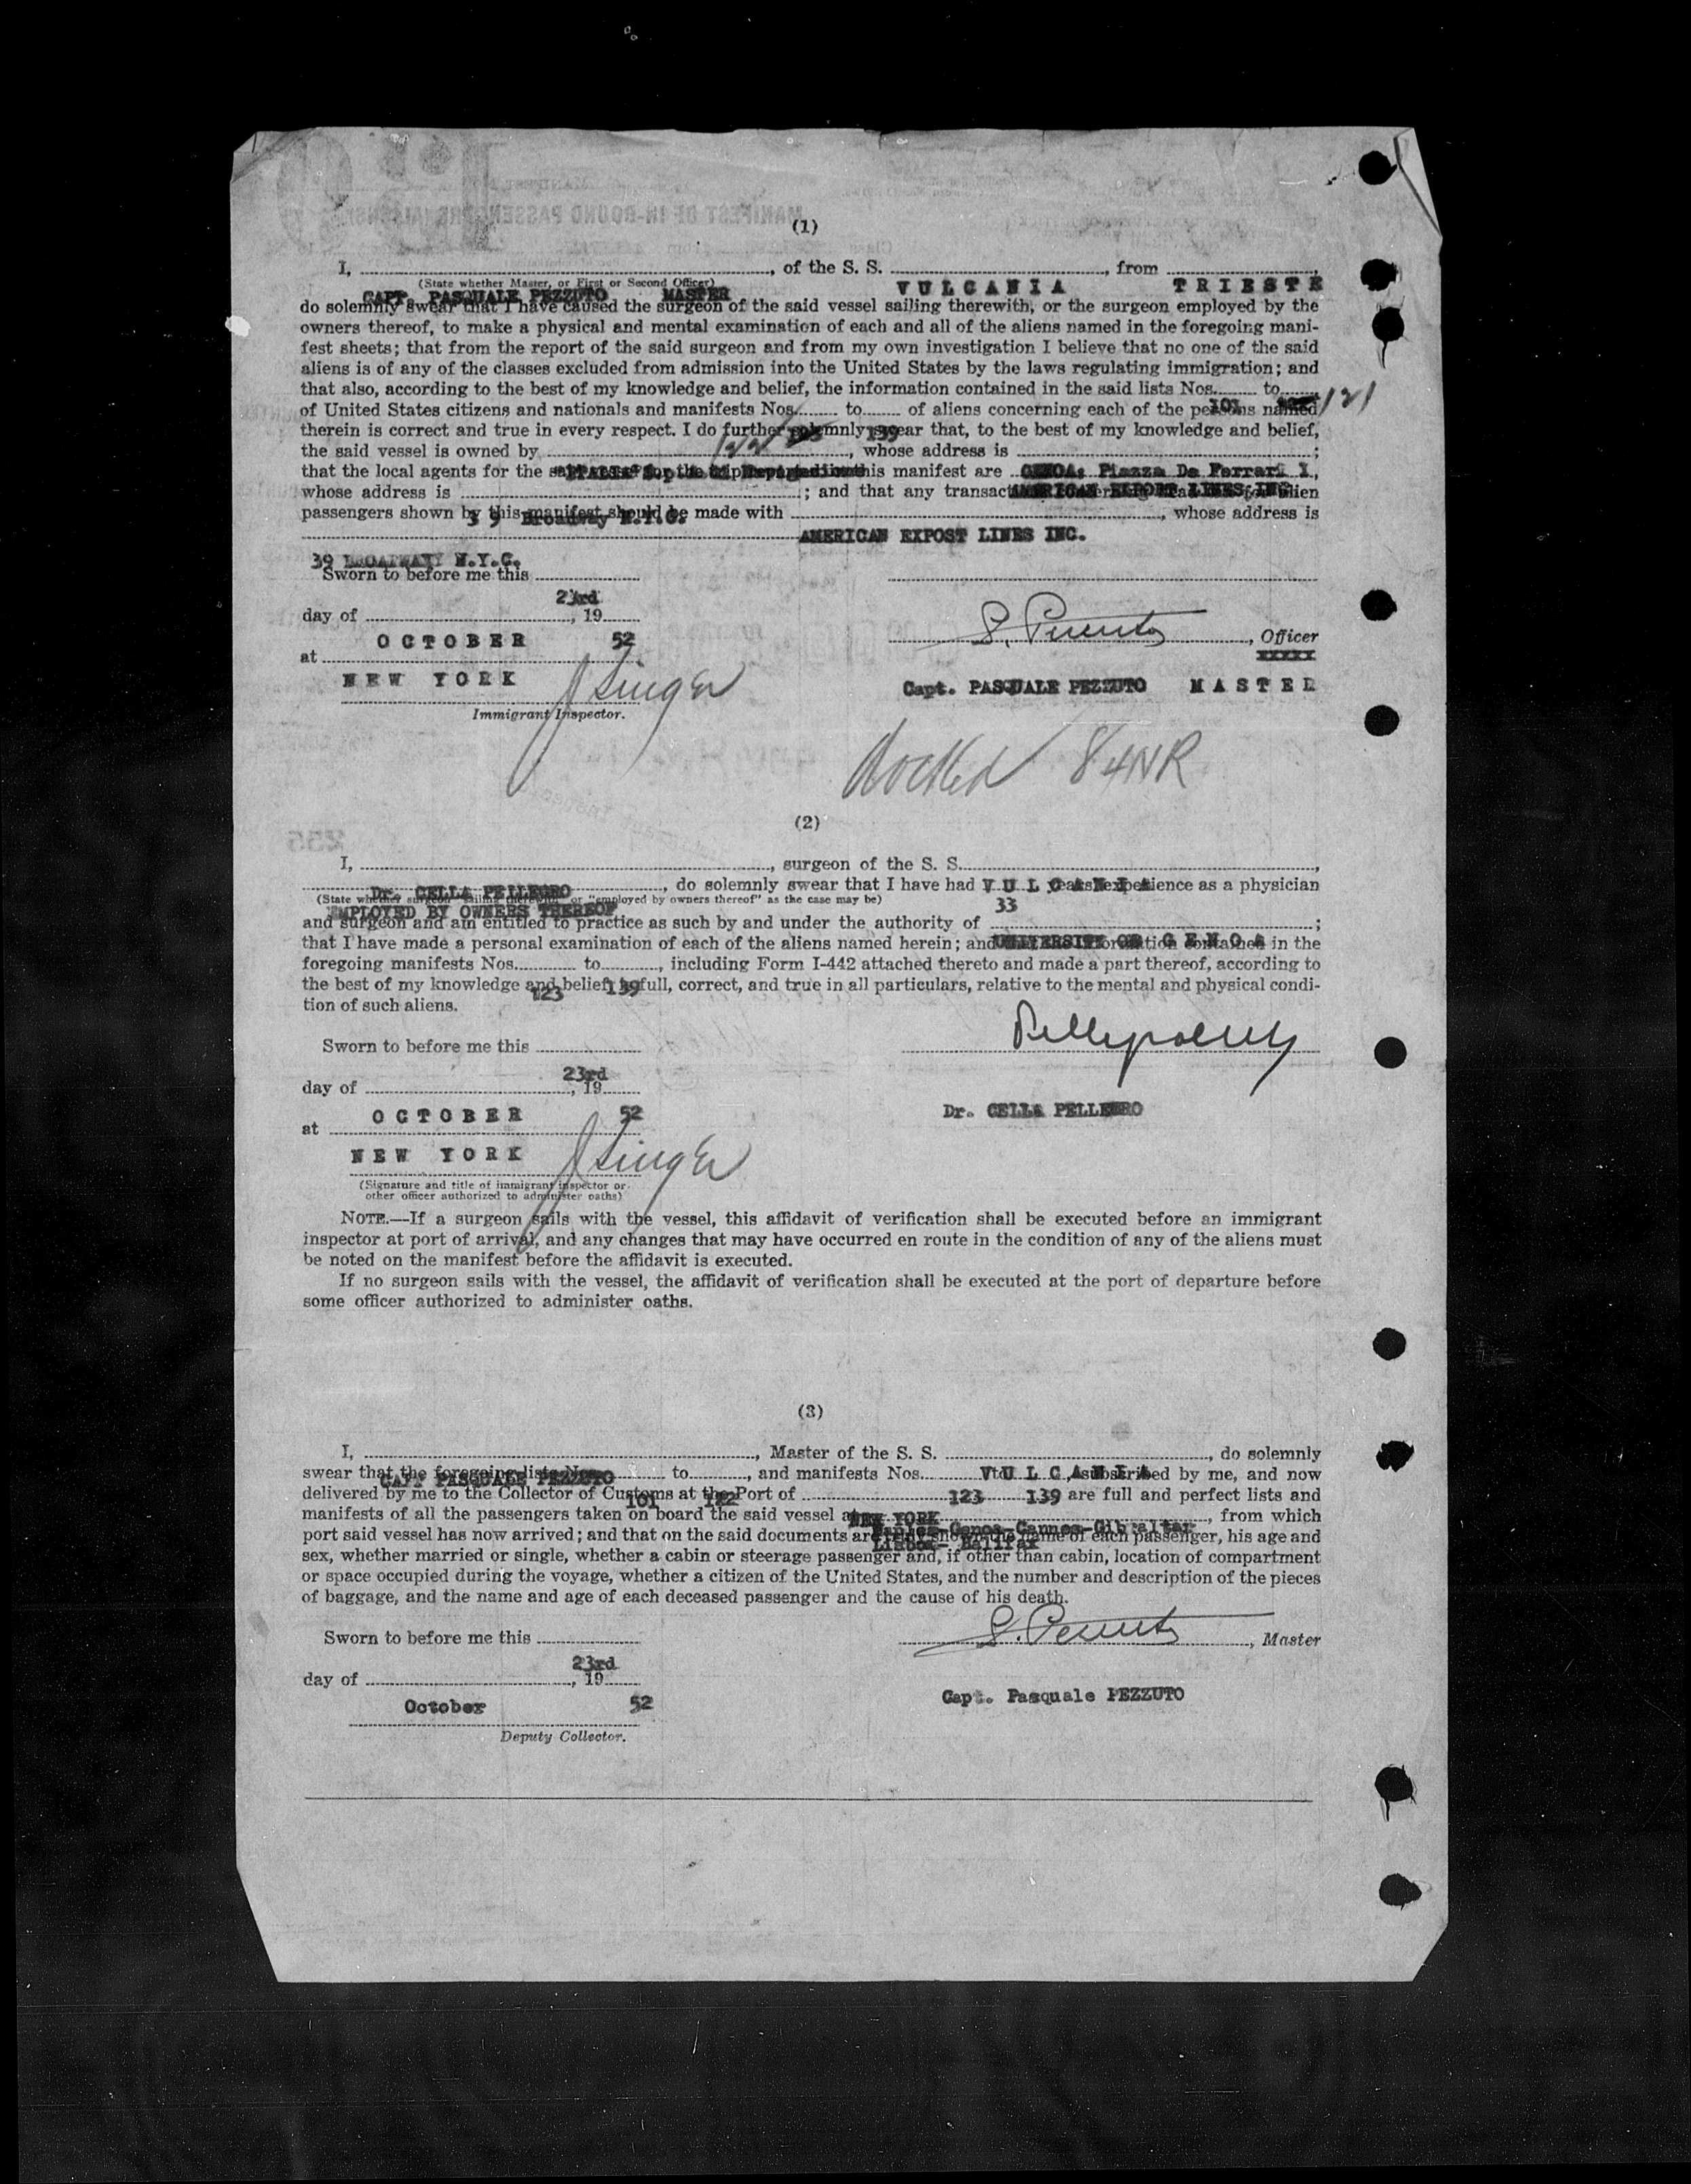 (1)
I, ........, of the S. S. ........, from ........,
(State whether Master, or First or Second Officer)
CAPT. PASQUALE PEZZUTO MASTER VULCANIA TRIESTE
do solemnly swear that I have caused the surgeon of the said vessel sailing therewith, or the surgeon employed by the
owners thereof, to make a physical and mental examination of each and all of the aliens named in the foregoing mani-
fest sheets; that from the report of the said surgeon and from my own investigation I believe that no one of the said
aliens is of any of the classes excluded from admission into the United States by the laws regulating immigration; and
that also, according to the best of my knowledge and belief, the information contained in the said lists Nos. ........ to ........
of United States citizens and nationals and manifests Nos. ........ to ........ of aliens concerning each of the persons named
101 121
therein is correct and true in every respect. I do further solemnly swear that, to the best of my knowledge and belief,
122 139
the said vessel is owned by ........, whose address is ........;
that the local agents for the manifest are
GENOA, Piazza De Ferrari 1,
whose address is ........; and that any
AMERICAN EXPORT LINES INC.
passengers shown by this manifest should be made with ........, whose address is
3 9 Broadway N.Y.C.
AMERICAN EXPOST LINES INC.
39 BROADWAY N.Y.C.
Sworn to before me this ........
23rd
day of ........, 19....
OCTOBER 52
, Officer
xxxxx
at ........
NEW YORK
J Singer
Capt. PASQUALE PEZZUTO MASTER
Immigrant Inspector.
docked 84NR
(2)
I, ........, surgeon of the S. S. ........,
Dr. CELLA PELLEGRO ........, do solemnly swear that I have had VULCANIA years experience as a physician
(State whether surgeon "sailing therewith" or "employed by owners thereof" as the case may be)
EMPLOYED BY OWNERS THEREOF 33
and surgeon and am entitled to practice as such by and under the authority of ........;
that I have made a personal examination of each of the aliens named herein; and UNIVERSITY OF GENOA in the
foregoing manifests Nos. ........ to ........, including Form I-442 attached thereto and made a part thereof, according to
the best of my knowledge and belief, is full, correct, and true in all particulars, relative to the mental and physical condi-
123 139
tion of such aliens.
Sworn to before me this ........
23rd
day of ........, 19....
OCTOBER 52
Dr. CELLA PELLEGRO
at ........
NEW YORK
J Singer
(Signature and title of immigrant inspector or
other officer authorized to administer oaths)
NOTE.—If a surgeon sails with the vessel, this affidavit of verification shall be executed before an immigrant
inspector at port of arrival, and any changes that may have occurred en route in the condition of any of the aliens must
be noted on the manifest before the affidavit is executed.
If no surgeon sails with the vessel, the affidavit of verification shall be executed at the port of departure before
some officer authorized to administer oaths.
(3)
I, ........, Master of the S. S. ........, do solemnly
swear that the foregoing lists Nos. ........ to ........, and manifests Nos. ........ to ........, subscribed by me, and now
CAPT PASQUALE PEZZUTO VULCANIA
delivered by me to the Collector of Customs at the Port of ........ are full and perfect lists and
101 122 123 139
manifests of all the passengers taken on board the said vessel at ........, from which
NEW YORK
Naples-Genoa-Cannes-Gibraltar
port said vessel has now arrived; and that on the said documents are truly shown the name of each passenger, his age and
Lisbon- Halifax
sex, whether married or single, whether a cabin or steerage passenger and, if other than cabin, location of compartment
or space occupied during the voyage, whether a citizen of the United States, and the number and description of the pieces
of baggage, and the name and age of each deceased passenger and the cause of his death.
Sworn to before me this ........
, Master
23rd
day of ........, 19....
October 52
Capt. Pasquale PEZZUTO
Deputy Collector.